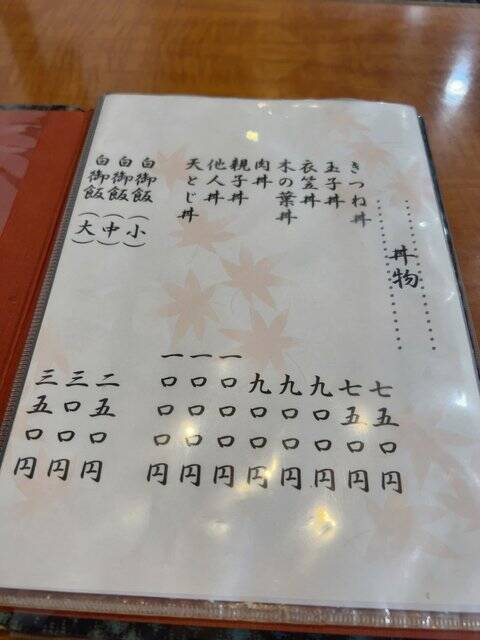 丼物
きつね丼 七五〇円
玉子丼 七五〇円
衣笠丼 九〇〇円
木の葉丼 九〇〇円
肉丼 九〇〇円
親子丼 一〇〇〇円
他人丼 一〇〇〇円
天とじ丼 一〇〇〇円
白御飯(小) 二五〇円
白御飯(中) 三〇〇円
白御飯(大) 三五〇円